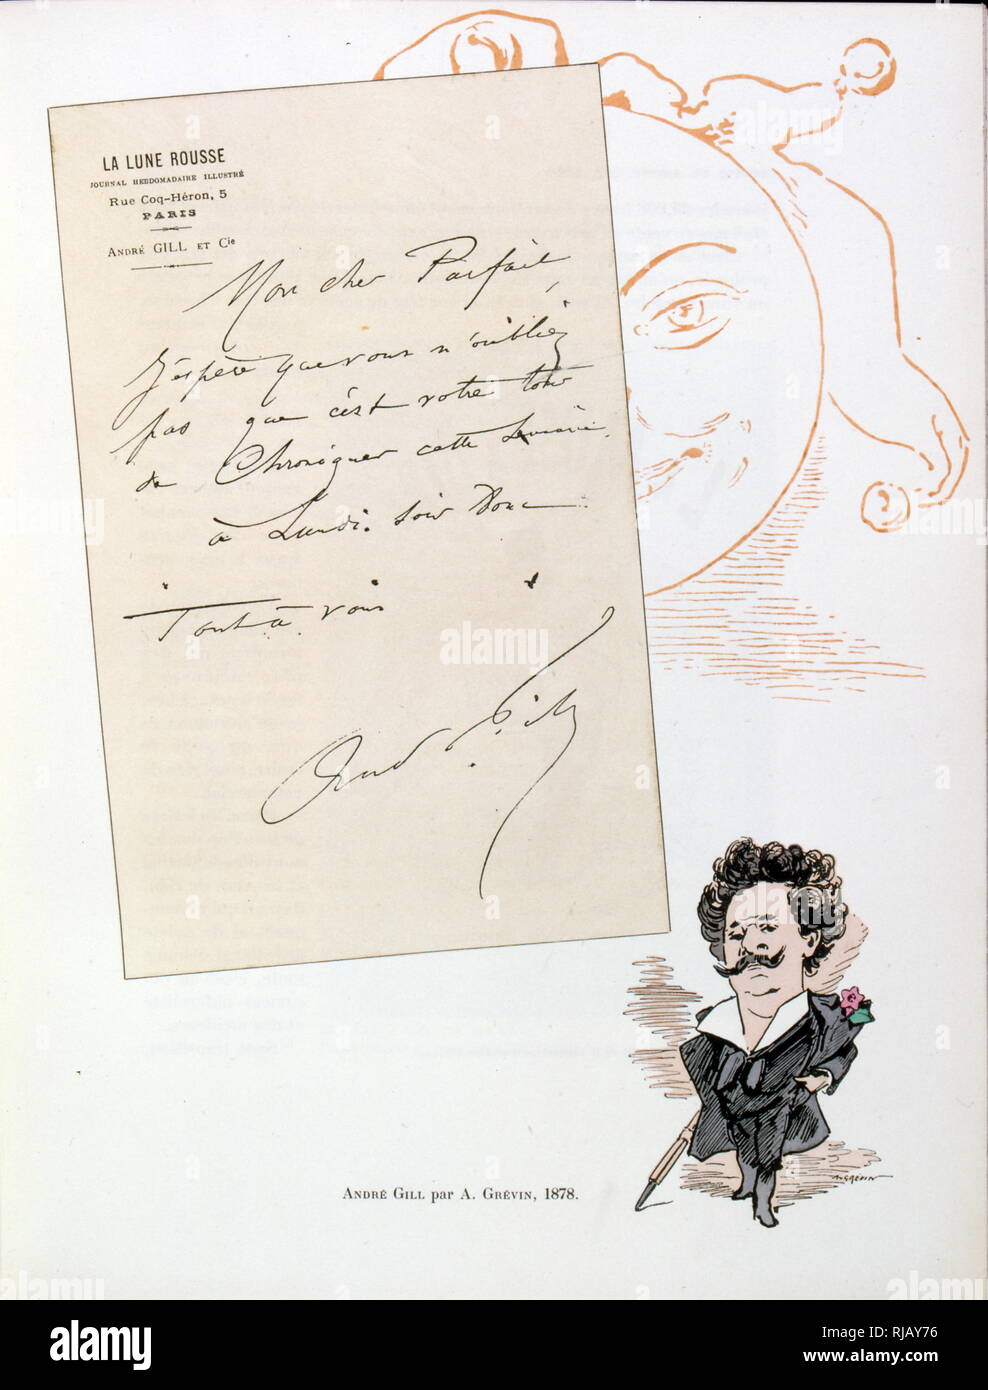 LA LUNE ROUSSE
JOURNAL HEBDOMADAIRE ILLUSTRÉ
Rue Coq-Héron, 5
PARIS
ANDRÉ GILL ET Cie
Mon cher Parfait,
J'espère que vous n'oubliez
pas que c'est votre tour
de Chroniquer cette semaine.
à Lundi soir Donc
Tout à vous
And Gill
A. GRÉVIN
ANDRÉ GILL par A. GRÉVIN, 1878.
alamy
Image ID: RJAY76
www.alamy.com